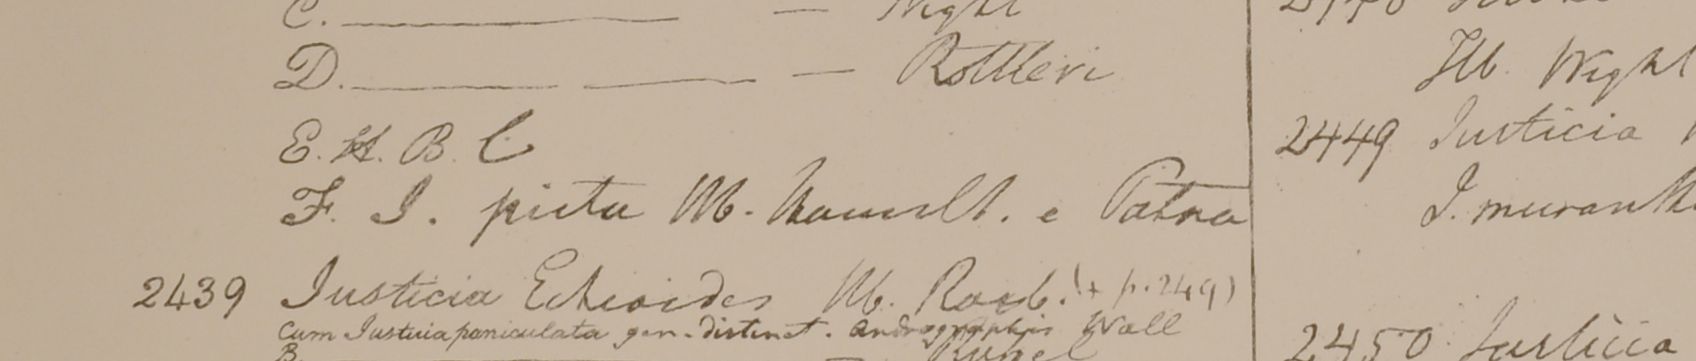 C. — Wight
D. — Rottleri
E. H. B. C
F. J. picta Hb. Hamilt. e Patna
2439 Justicia Echioides Hb. Roxb. (+ p. 249)
Cum Justicia paniculata gen. distinct. Andrographis Wall
B. —
Hb. Wight
2449 Justicia
J.
2450 Justicia